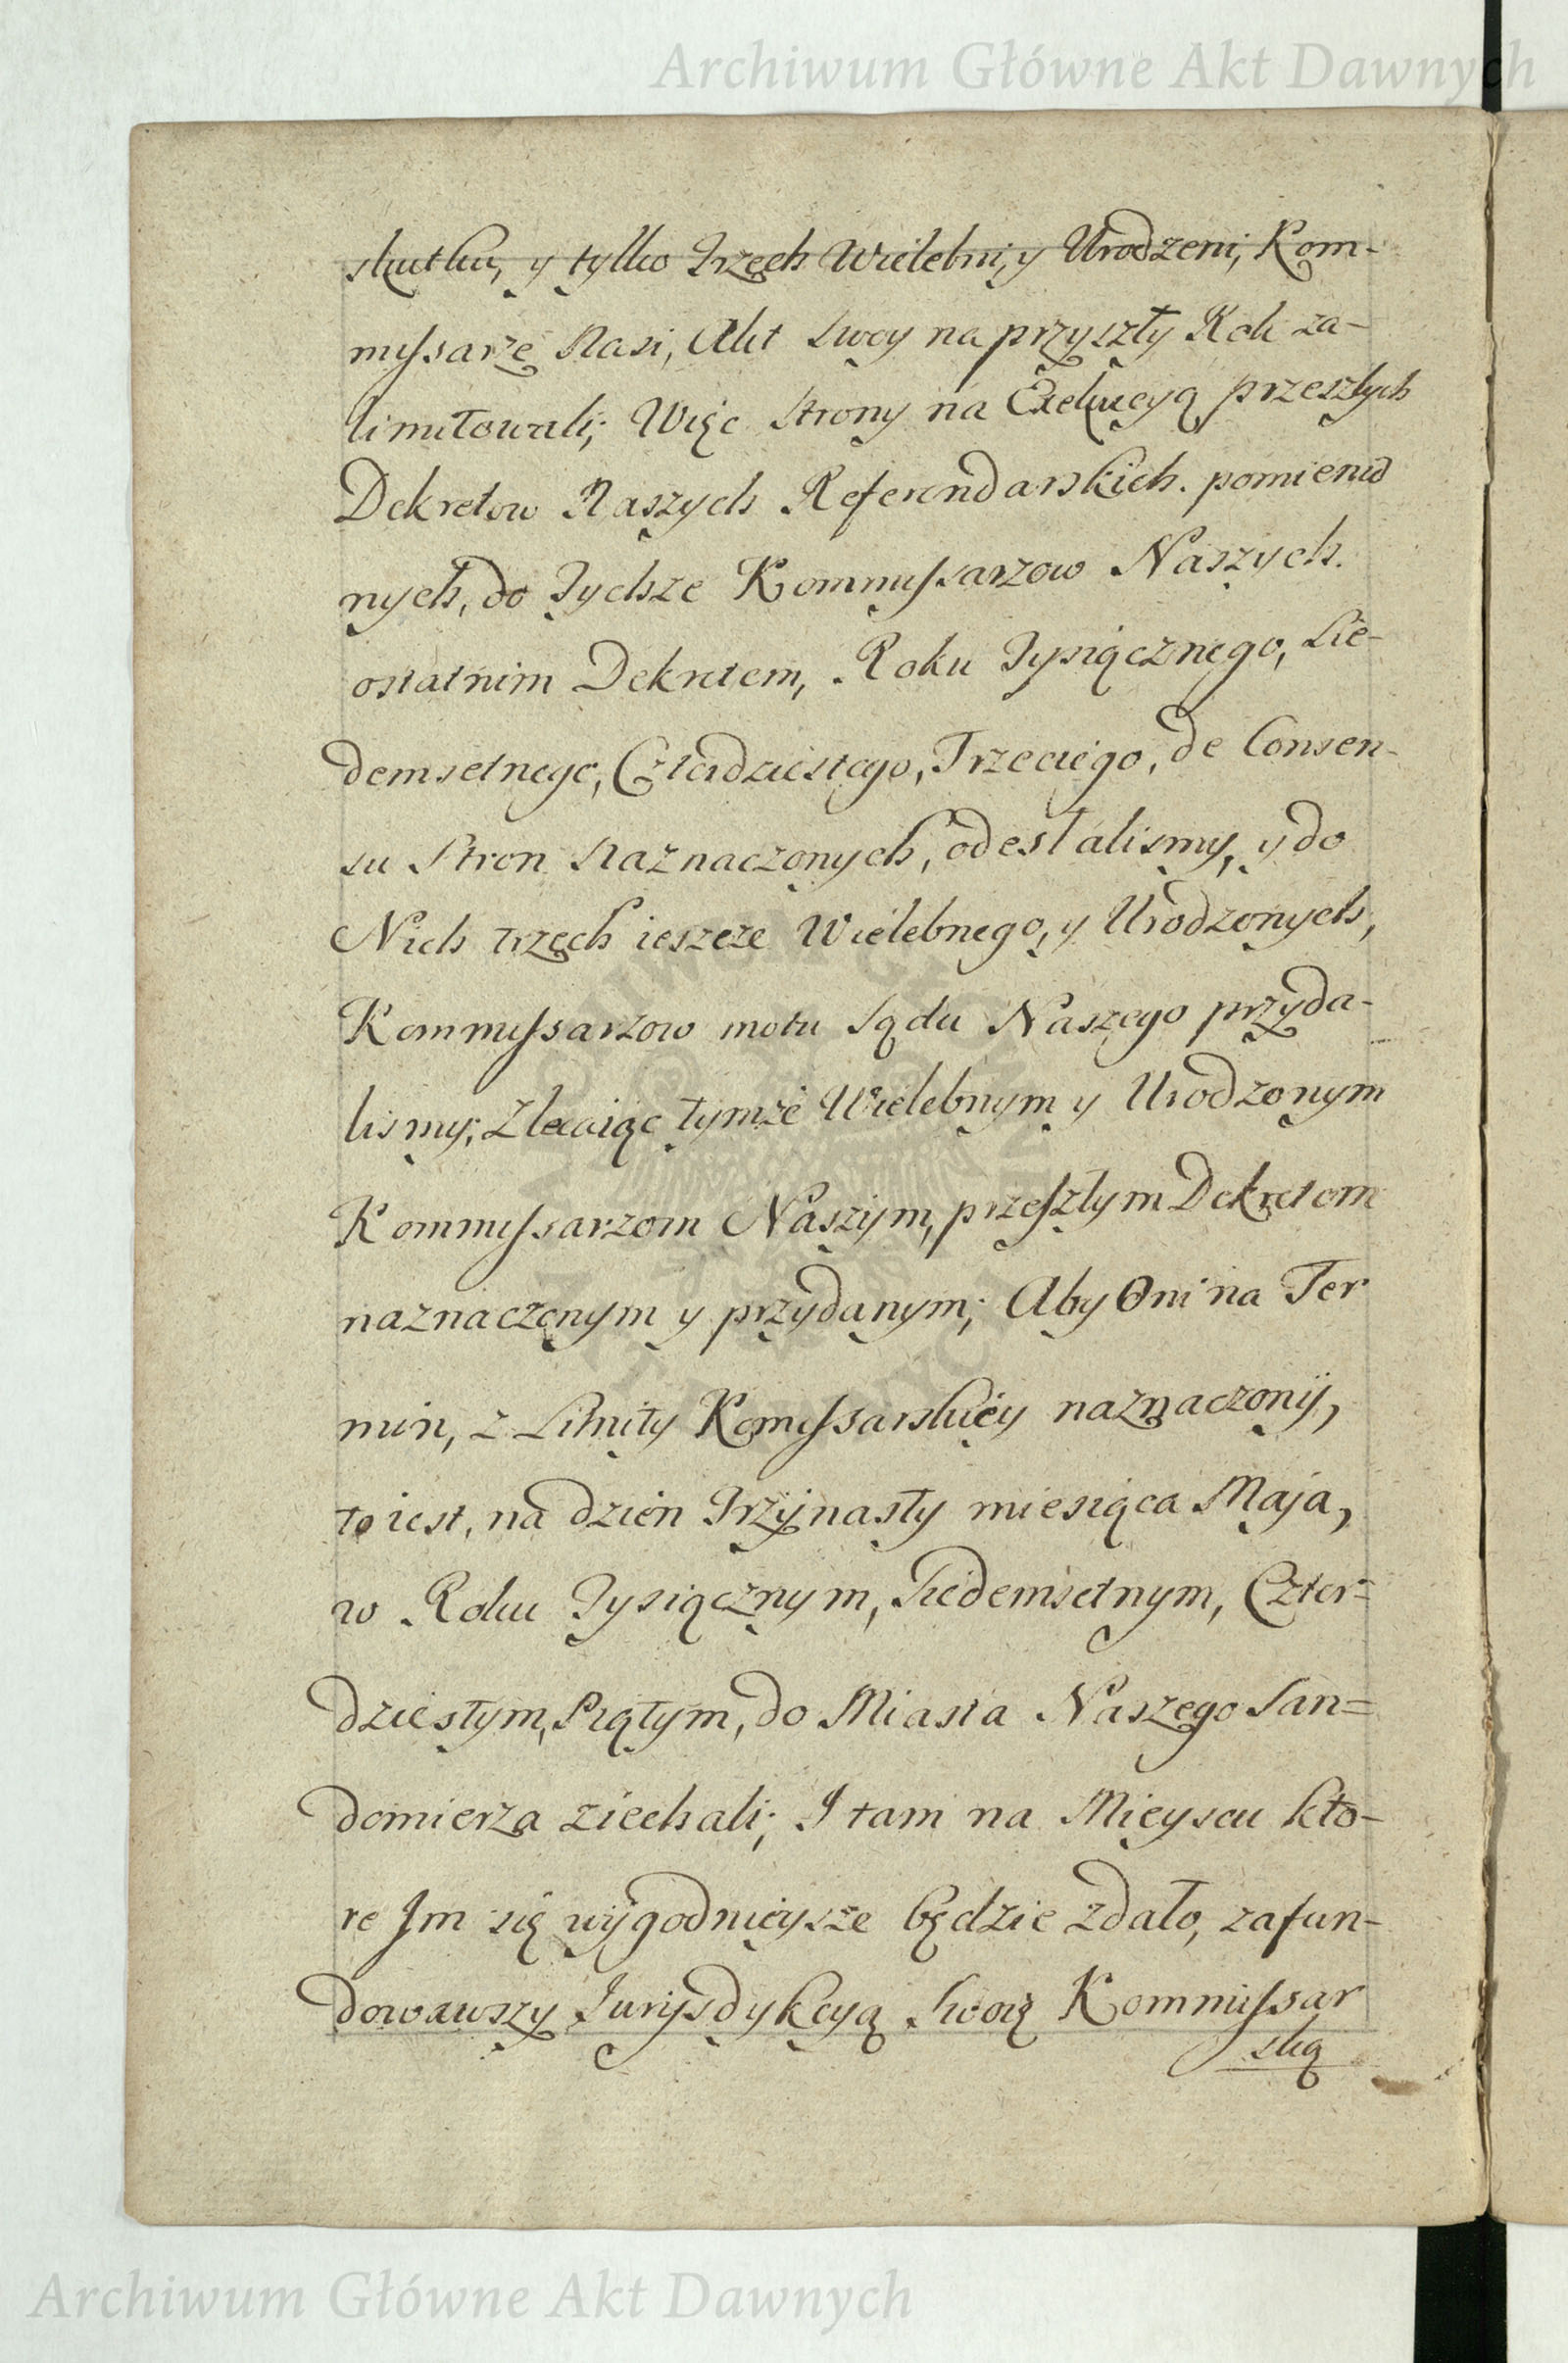 Archiwum Główne Akt Dawnych
skutku, y tylko Trzech Wielebni, y Urodzeni, Kom-
myssarze Nasi, Akt Swoy na przyszły Rok za-
limitowali; Więc Strony na Exekucyą przeszłych
Dekretow Naszych Referendarskich. pomienio
nych, do Tychże Kommissarzow Naszych.
ostatnim Dekretem, Roku Tysiącznego, Sie-
demsetnego, Czterdziestego, Trzeciego, de Consen-
su Stron Naznaczonych, odesłalismy, y do
Nich trzech ieszcze Wielebnego, y Urodzonych,
Kommissarzow motu Sądu Naszego przyda-
lismy; Zlecaiąc tymże Wielebnym y Urodzonym
Kommissarzom Naszym, przeszłym Dekretom
naznaczonym y przydanym; Aby Oni na Ter
min, z Limity Komissarskiey naznaczonÿ,
to iest, na dzień Trzÿnasty miesiąca Maja,
w Roku Tysiącznym, Siedemsetnym, Czter=
dziestym, Piątym, do Miasta Naszego San=
domierza ziechali; I tam na Mieyscu kto-
re Jm się wÿgodnieysze będzie zdało, zafun-
dowawszy Jurÿsdykcyą Swoią Kommissar
ską
Archiwum Główne Akt Dawnych